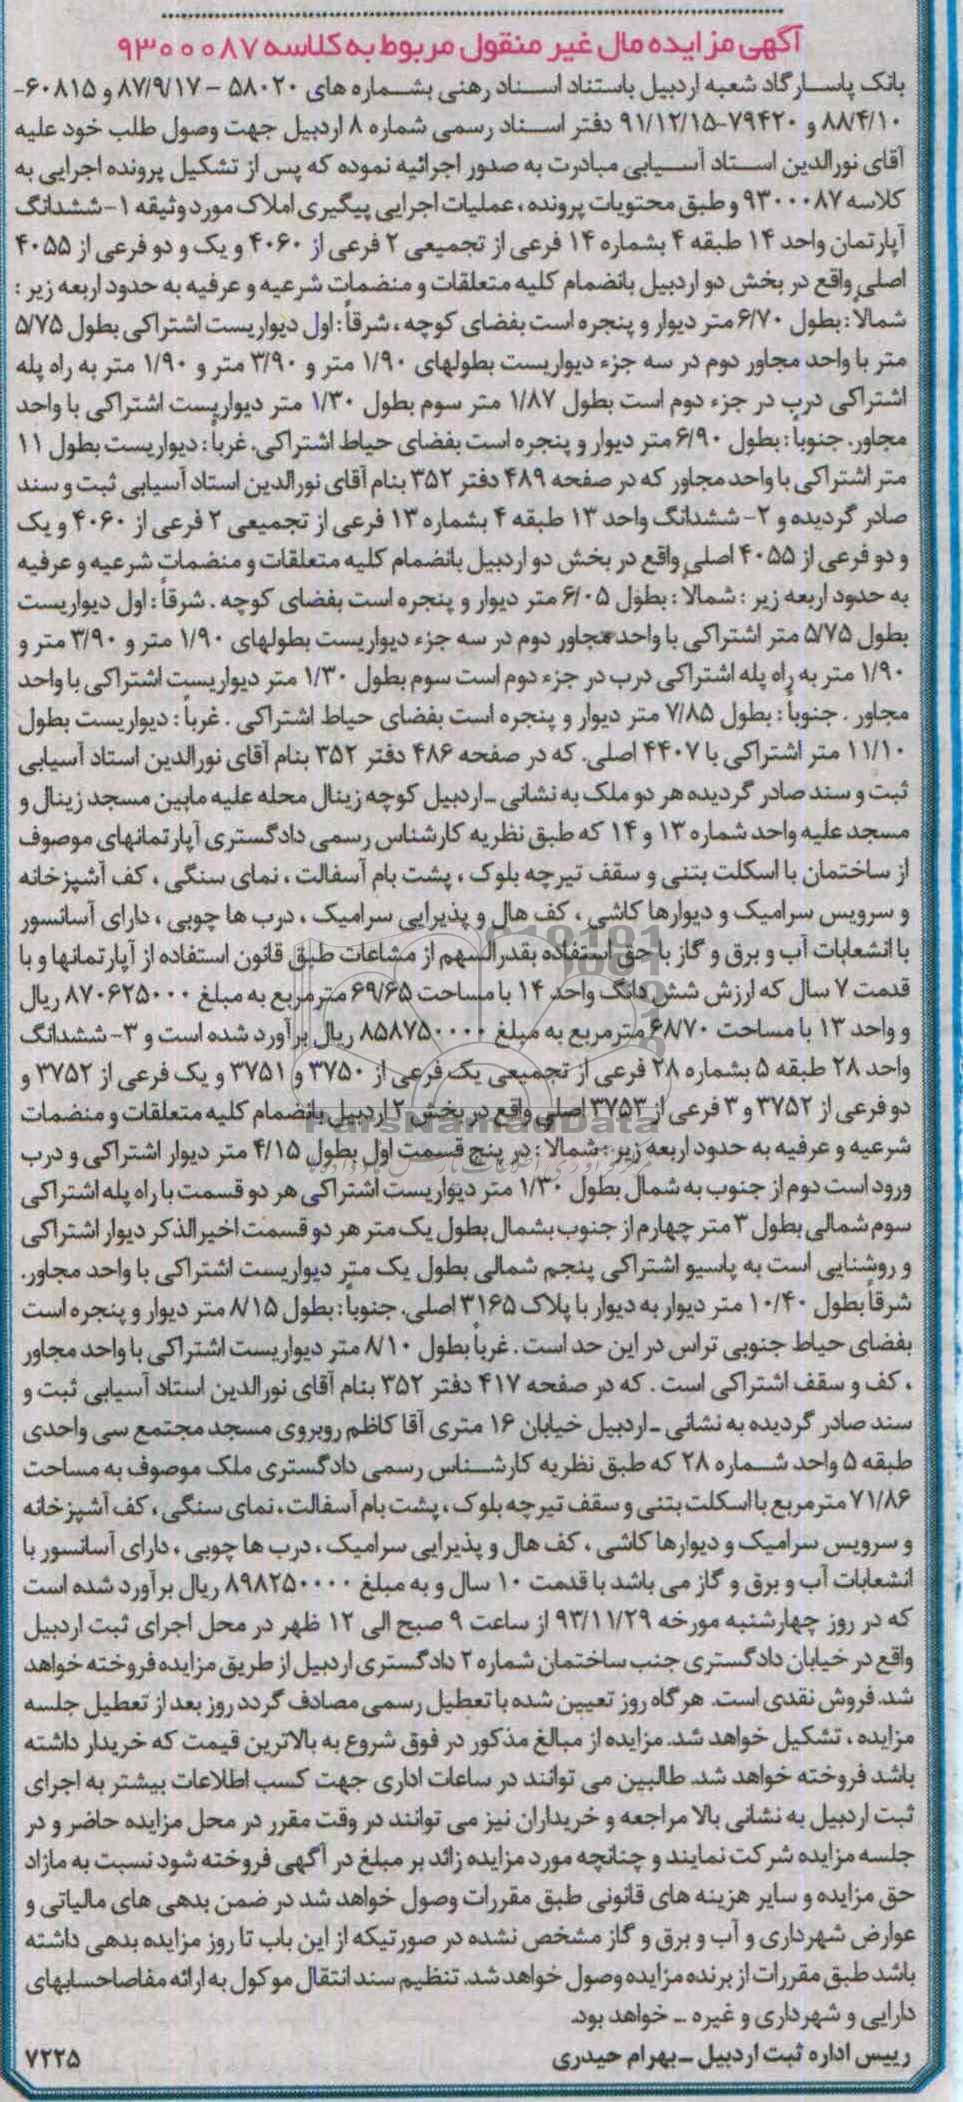 آگهی مزایده مال غیر منقول مربوط به کلاسه ۹۳۰۰۰۸۷
بانک پاسارگاد شعبه اردبیل باستناد اسناد رهنی بشماره های ۵۸۰۲۰ – ۸۷/۹/۱۷ و ۶۰۸۱۵-
۸۸/۴/۱۰ و ۷۹۴۲۰-۹۱/۱۲/۱۵ دفتر اسناد رسمی شماره ۸ اردبیل جهت وصول طلب خود علیه
آقای نورالدین استاد آسیابی مبادرت به صدور اجرائیه نموده که پس از تشکیل پرونده اجرایی به
کلاسه ۹۳۰۰۰۸۷ و طبق محتویات پرونده ، عملیات اجرایی پیگیری املاک مورد وثیقه ۱- ششدانگ
آپارتمان واحد ۱۴ طبقه ۴ بشماره ۱۴ فرعی از تجمیعی ۲ فرعی از ۴۰۶۰ و یک و دو فرعی از ۴۰۵۵
اصلی واقع در بخش دو اردبیل بانضمام کلیه متعلقات و منضمات شرعیه و عرفیه به حدود اربعه زیر :
شمالاً : بطول ۶/۷۰ متر دیوار و پنجره است بفضای کوچه ، شرقاً : اول دیواریست اشتراکی بطول ۵/۷۵
متر با واحد مجاور دوم در سه جزء دیواریست بطولهای ۱/۹۰ متر و ۳/۹۰ متر و ۱/۹۰ متر به راه پله
اشتراکی درب در جزء دوم است بطول ۱/۸۷ متر سوم بطول ۱/۳۰ متر دیواریست اشتراکی با واحد
مجاور. جنوباً : بطول ۶/۹۰ متر دیوار و پنجره است بفضای حیاط اشتراکی. غرباً : دیواریست بطول ۱۱
متر اشتراکی با واحد مجاور که در صفحه ۴۸۹ دفتر ۳۵۲ بنام آقای نورالدین استاد آسیابی ثبت و سند
صادر گردیده و ۲- ششدانگ واحد ۱۳ طبقه ۴ بشماره ۱۳ فرعی از تجمیعی ۲ فرعی از ۴۰۶۰ و یک
و دو فرعی از ۴۰۵۵ اصلی واقع در بخش دو اردبیل بانضمام کلیه متعلقات و منضمات شرعیه و عرفیه
به حدود اربعه زیر : شمالاً : بطول ۶/۰۵ متر دیوار و پنجره است بفضای کوچه . شرقاً : اول دیواریست
بطول ۵/۷۵ متر اشتراکی با واحد مجاور دوم در سه جزء دیواریست بطولهای ۱/۹۰ متر و ۳/۹۰ متر و
۱/۹۰ متر به راه پله اشتراکی درب در جزء دوم است سوم بطول ۱/۳۰ متر دیواریست اشتراکی با واحد
مجاور . جنوباً : بطول ۷/۸۵ متر دیوار و پنجره است بفضای حیاط اشتراکی . غرباً : دیواریست بطول
۱۱/۱۰ متر اشتراکی با ۴۴۰۷ اصلی. که در صفحه ۴۸۶ دفتر ۳۵۲ بنام آقای نورالدین استاد آسیابی
ثبت و سند صادر گردیده هر دو ملک به نشانی – اردبیل کوچه زینال محله علیه مابین مسجد زینال و
مسجد علیه واحد شماره ۱۳ و ۱۴ که طبق نظریه کارشناس رسمی دادگستری آپارتمانهای موصوف
از ساختمان با اسکلت بتنی و سقف تیرچه بلوک ، پشت بام آسفالت ، نمای سنگی ، کف آشپزخانه
و سرویس سرامیک و دیوارها کاشی ، کف هال و پذیرایی سرامیک ، درب ها چوبی ، دارای آسانسور
با انشعابات آب و برق و گاز با حق استفاده بقدرالسهم از مشاعات طبق قانون استفاده از آپارتمانها و با
قدمت ۷ سال که ارزش شش دانگ واحد ۱۴ با مساحت ۶۹/۶۵ مترمربع به مبلغ ۸۷۰۶۲۵۰۰۰ ریال
و واحد ۱۳ با مساحت ۶۸/۷۰ مترمربع به مبلغ ۸۵۸۷۵۰۰۰۰ ریال برآورد شده است و ۳- ششدانگ
واحد ۲۸ طبقه ۵ بشماره ۲۸ فرعی از تجمیعی یک فرعی از ۳۷۵۰ و ۳۷۵۱ و یک فرعی از ۳۷۵۲ و
دو فرعی از ۳۷۵۲ و ۳ فرعی از ۳۷۵۳ اصلی واقع در بخش ۲ اردبیل بانضمام کلیه متعلقات و منضمات
شرعیه و عرفیه به حدود اربعه زیر : شمالاً : در پنج قسمت اول بطول ۴/۱۵ متر دیوار اشتراکی و درب
ورود است دوم از جنوب به شمال بطول ۱/۳۰ متر دیواریست اشتراکی هر دو قسمت با راه پله اشتراکی
سوم شمالی بطول ۳ متر چهارم از جنوب بشمال بطول یک متر هر دو قسمت اخیرالذکر دیوار اشتراکی
و روشنایی است به پاسیو اشتراکی پنجم شمالی بطول یک متر دیواریست اشتراکی با واحد مجاور.
شرقاً بطول ۱۰/۴۰ متر دیوار به دیوار با پلاک ۳۱۶۵ اصلی. جنوباً : بطول ۸/۱۵ متر دیوار و پنجره است
بفضای حیاط جنوبی تراس در این حد است . غرباً بطول ۸/۱۰ متر دیواریست اشتراکی با واحد مجاور
، کف و سقف اشتراکی است . که در صفحه ۴۱۷ دفتر ۳۵۲ بنام آقای نورالدین استاد آسیابی ثبت و
سند صادر گردیده به نشانی – اردبیل خیابان ۱۶ متری آقا کاظم روبروی مسجد مجتمع سی واحدی
طبقه ۵ واحد شماره ۲۸ که طبق نظریه کارشناس رسمی دادگستری ملک موصوف به مساحت
۷۱/۸۶ مترمربع با اسکلت بتنی و سقف تیرچه بلوک ، پشت بام آسفالت ، نمای سنگی ، کف آشپزخانه
و سرویس سرامیک و دیوارها کاشی ، کف هال و پذیرایی سرامیک ، درب ها چوبی ، دارای آسانسور با
انشعابات آب و برق و گاز می باشد با قدمت ۱۰ سال و به مبلغ ۸۹۸۲۵۰۰۰۰ ریال برآورد شده است
که در روز چهارشنبه مورخه ۹۳/۱۱/۲۹ از ساعت ۹ صبح الی ۱۲ ظهر در محل اجرای ثبت اردبیل
واقع در خیابان دادگستری جنب ساختمان شماره ۲ دادگستری اردبیل از طریق مزایده فروخته خواهد
شد. فروش نقدی است. هرگاه روز تعیین شده با تعطیل رسمی مصادف گردد روز بعد از تعطیل جلسه
مزایده ، تشکیل خواهد شد. مزایده از مبالغ مذکور در فوق شروع به بالاترین قیمت که خریدار داشته
باشد فروخته خواهد شد. طالبین می توانند در ساعات اداری جهت کسب اطلاعات بیشتر به اجرای
ثبت اردبیل به نشانی بالا مراجعه و خریداران نیز می توانند در وقت مقرر در محل مزایده حاضر و در
جلسه مزایده شرکت نمایند و چنانچه مورد مزایده زائد بر مبلغ در آگهی فروخته شود نسبت به مازاد
حق مزایده و سایر هزینه های قانونی طبق مقررات وصول خواهد شد در ضمن بدهی های مالیاتی و
عوارض شهرداری و آب و برق و گاز مشخص نشده در صورتیکه از این باب تا روز مزایده بدهی داشته
باشد طبق مقررات از برنده مزایده وصول خواهد شد. تنظیم سند انتقال موکول به ارائه مفاصاحسابهای
دارایی و شهرداری و غیره – خواهد بود.
رییس اداره ثبت اردبیل – بهرام حیدری
۷۲۲۵
ParsNamadData